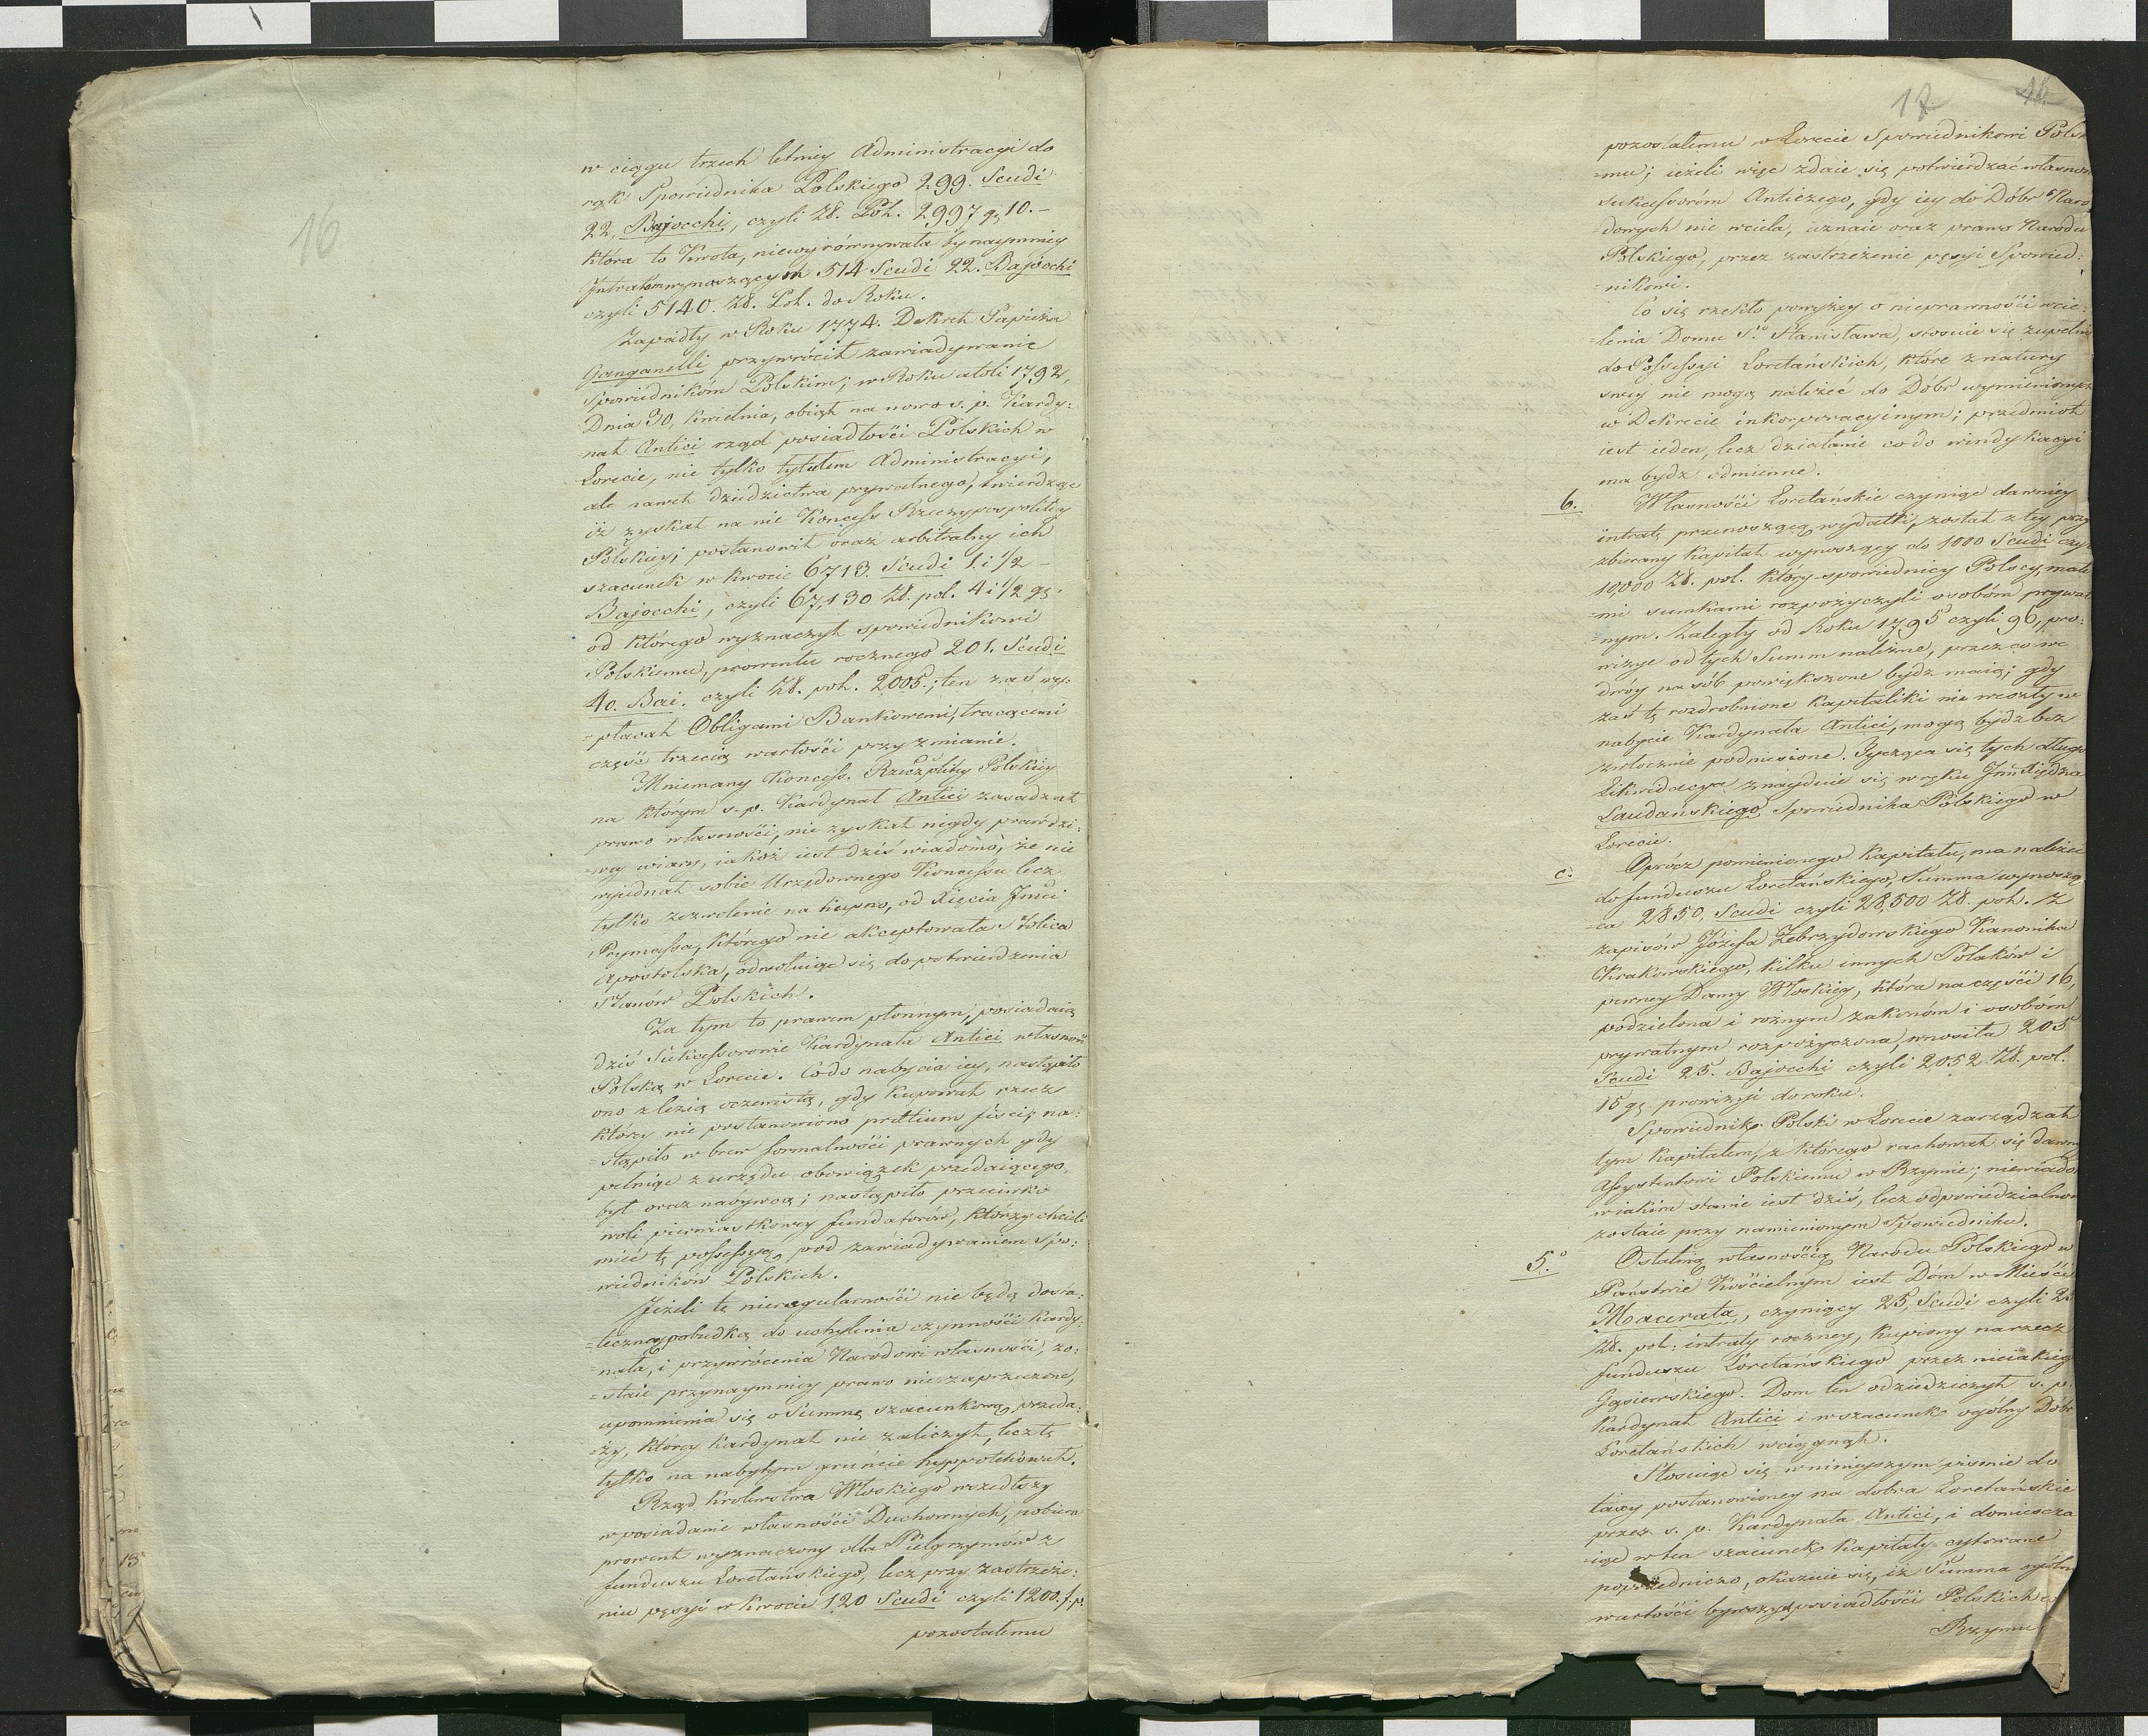 16
w ciągu trzech letniey Administracyi do
rąk Spowiednika Polskiego 299. Scudi
22, Bajocchi, czyli Zł. Pol. 2997 gs 10.-
która to kwota, niewyrównywała bynaymniey
Intratom wynoszącym 514 Scudi 22. Bajocchi
czyli 5140. Zł. Pol. do Roku.
Zapadły w Roku 1774. Dekret Papieża
Ganganelli przywrócił zawiadywanie
Spowiedników Polskim; w Roku atoli 1792,
Dnia 30, kwietnia, obiął na nowo s. p. Kardy:
nał Antici rząd posiadłości Polskich w
Lorecie, nie tylko tytułem Administracyi,
ale nawet dziedzictwa prywatnego, twierdząc
iż zyskał na nie Koncess Rzeczypospolitey
Polskiey; postanowił oraz arbitralny ich
szacunek w kwocie 6713. Scudi 1. i 1/2 -
Bajocchi, czyli 67,130 Zł. pol. 4 i 1/2 gs.
od którego wyznaczył spowiednikowi
Polskiemu, prowentu rocznego 201. Scudi
40. Bai. czyli Zł. pol. 2005.; ten zaś wy:
=płacał Obligami Bankowemi, tracącemi
część trzecią wartości przy zmianie.
Mniemany Koncess. Rzeczplitey Polskiey
na którym s. p. Kardynał Antici zasadzał
prawo własności, nie zyskał nigdy prawdzi:
=wey wiary, iakoż iest dziś wiadomo, że nie
wyiednał sobie Urzędownego Koncessu lecz
tylko zezwolenie na kupno, od Xięcia Jmci
Prymassa, którego nie akceptowała Stolica
Apostolska, odwołuiąc się do potwierdzenia
Stanów Polskich.
Za tym to prawem płonnym, posiadaią
dziś Sukcessorowie Kardynała Antici własność
Polską w Lorecie. Co do nabycia iey, nastąpiło
ono z lezią oczewistą, gdy kupował rzecz
którey nie postanowiono prettium fisci; na:
=stąpiło w brew formalności prawnych gdy
pełniąc z urzędu obowiązek przedaiącego,
był oraz nabywcą; nastąpiło przeciwko
woli pierwiastkowey fundatorów, którzy chcieli
mieć tę possessyą pod zawiadywaniem Spo:
wiedników Polskich.
Jeżeli te nieregularności nie będą dosta:
=teczną pobudką do uchylenia czynności Kardy:
=nała, i przywrócenia Narodowi własności, zo:
=staie przynaymniey prawo niezaprzeczone,
upomnienia się o Summę szacunkową przeda:
ży, którey Kardynał nie zaliczył, lecz tę
tylko na nabytym gruncie hyppotekował.
Rząd Krolestwa Włoskiego wszedłszy
w posiadanie własności Duchownych, pobiera
prowent wyznaczony dla Pielgrzymów z
funduszu Loretańskiego, lecz przy zastrzeże:
niu pęsyi w kwocie 120 Scudi czyli 1200. f. p.
pozostałemu
17
pozostałemu w Lorecie Spowiednikowi Pols
=mu; ieżeli więc zdaie się potwierdzać własnos
Sukcessorom Anticzego, gdy iey do Dóbr Naro
=dowych nie wciela, uznaie oraz prawo Narodu
Polskiego, przez zastrzeżenie pęsyi Spowied:
=nikowi.
Co się rzekło powyżey o nieprawności wcie:
=lenia Domu Sgo Stanisława, stosuie się zupełnie
do Possessyi Loretańskich, które z natury
swey nie mogą należeć do Dóbr wymienionych
w Dekrecie inkorporacyinym; przedmiot
iest ieden, lecz działanie co do windykacyi
ma bydź odmienne.
6. Własności Loretańskie czyniąc dawniey
intratę przenoszącą wydatki, został z tey przy
zbierany Kapitał wynoszący do 1000 Scudi czy
10,000 Zł. pol. który spowiednicy Polscy, małe
=mi sumkami rozpożyczyli osobom prywat
=nym. Zaległy od Roku 1795 czyli 96, pro:
wizye od tych Summ należne, przez co we
dwóy nasób powiększone bydź maią; gdy
zaś te rozdrobnione kapitaliki nie weszły w
nabycie Kardynała Antici, mogą bydź bez
zwłocznie podniesione. Tycząca się tych długów
Likwidacya znayduie się w ręku Jmć Xiędza
Laudańskiego Spowiednika Polskiego w
Lorecie.
c. Oprócz pomienionego Kapitału, ma należeć
do funduszu Loretańskiego, Summa wynoszą
=ca 2850, Scudi czyli 28,500 Zł. pol. z
zapisów Józefa Zebrzydowskiego Kanonika
Krakowskiego, kilku innych Polaków i
pewney Damy Włoskiey, która na części 16,
podzielona i rożnym zakonóm i osobóm
prywatnym rozpożyczona, wnosiła 205
Scudi 25. Bajocchi czyli 2,052 Zł. pol.
15 gs prowizyi do roku.
Spowiednik Polski w Lorecie zarządzał
tym Kapitałem, z którego rachował się dawniey
Assystentowi Polskiemu w Rzymie; niewiado
w iakim stanie iest dziś, lecz odpowiedzialnos
zostaie przy namienionym Spowiedniku.
5.° Ostatnią własnością Narodu Polskiego w
Państwie Kościelnym iest Dóm w Mieście
Macerata, czyniący 25, Scudi czyli 2
Zł. pol: intraty roczney, kupiony na rzecz
funduszu Loretańskiego przez nieiakieg
Gąsiewskiego. Dom ten odziedziczył s. p.
Kardynał Antici i w szacunek ogólny Dóbr
Loretańskich wciągnął.
Stosuiąc się w niniejszym pismie do
taxy postanowioney na dobra Loretańskie
przez s. p. Kardynała Antici, i domieszcza
=iąc w ten szacunek Kapitały cytowane
poprzedniczo, okazuie się, iż Summa ogóln
wartości bywszey posiadłości Polskich w
Rzymu